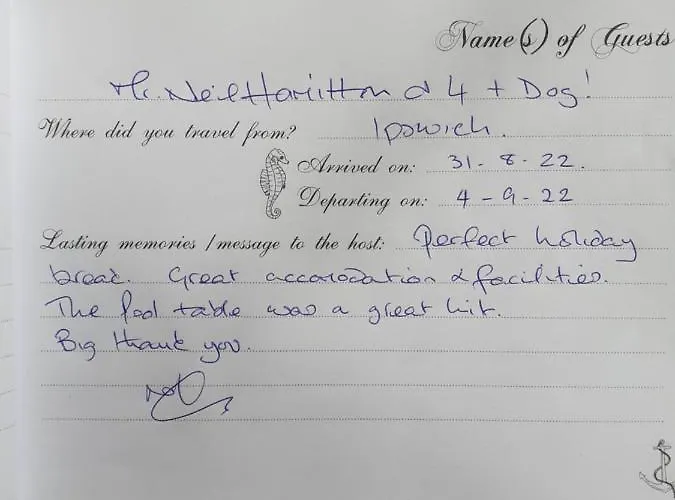 Name(s) of Guests
Mr. Neil Hamilton & 4 + Dog!
Where did you travel from? Ipswich.
Arrived on: 31 - 8 - 22.
Departing on: 4 - 9 - 22
Lasting memories / message to the host: Perfect holiday
break. Great accomodation & facilities.
The Pool table was a great hit.
Big thank you.